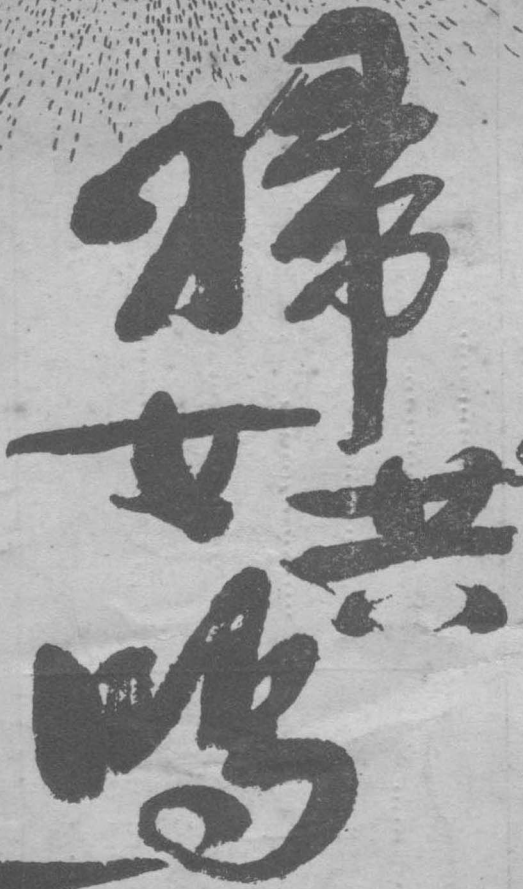 婦女共鳴